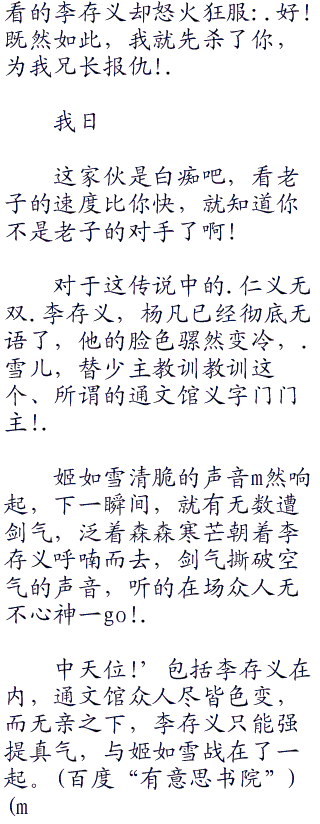 看的李存义却怒火狂服:.好!
既然如此，我就先杀了你，
为我兄长报仇!.
我日
这家伙是白痴吧，看老
子的速度比你快，就知道你
不是老子的对手了啊!
对于这传说中的.仁义无
双.李存义，杨凡已经彻底无
语了，他的脸色骤然变冷，.
雪儿，替少主教训教训这
个、所谓的通文馆义字门门
主!.
姬如雪清脆的声音m然响
起，下一瞬间，就有无数遭
剑气，泛着森森寒芒朝着李
存义呼喃而去，剑气撕破空
气的声音，听的在场众人无
不心神一go!.
中天位!’包括李存义在
内，通文馆众人尽皆色变，
而无亲之下，李存义只能强
提真气，与姬如雪战在了一
起。(百度“有意思书院”)
(m